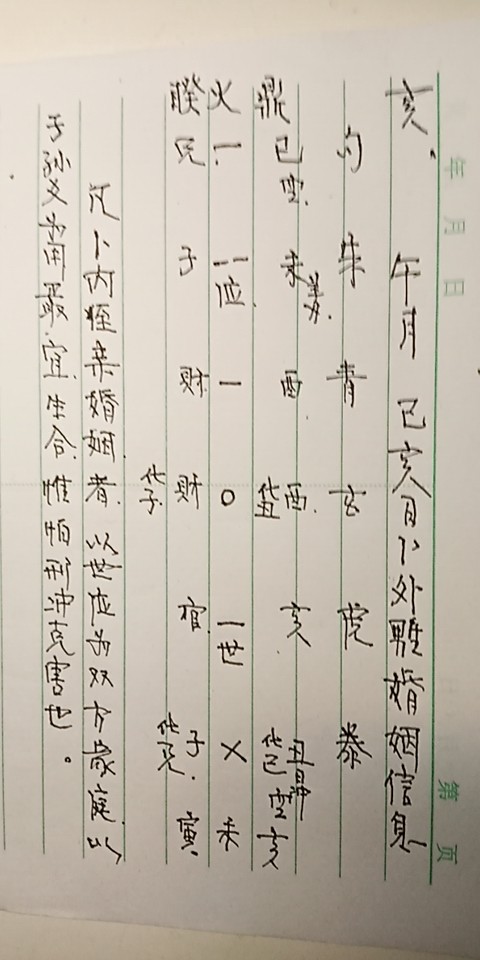 年 月 日 第 页
亥、 午月 己亥日卜外甥婚姻信息
勾 朱 青 玄 虎
鼎 巳空. 未 酉. 化丑 酉. 亥 化巳 丑 空 亥
火 一 位. 一 O 一世 X 未
睽 兄 子 财 财 化子. 官. 子. 化兄 寅
凡卜内侄亲婚姻者.以世位为双方家庭.以
子孙爻为用最宜生合.惟怕刑冲克害也。